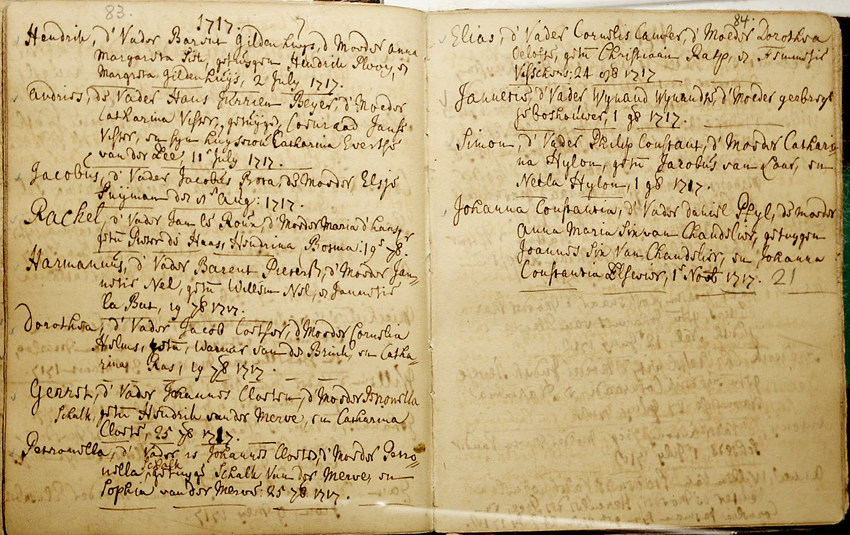 83.
1717.
Hendrik, d' Vader Barent Gildenhuys, d' Moeder Anna
Margareta Siek, getuygen Hendrik Plooy, en
Margreta Gildenhuys, 2 July 1717.
Andries, de Vader Hans Jurrien Beyer, d' Moeder
Catharina Visser, getuyge, Coenraad
Visser, en syn huysvrou Catharina Everts
van der Lee, 11 July 1717.
Jacobus, d' Vader Jacobus Bota, de Moeder Elsje
Snyman den 1 Aug: 1717.
Rachel, d' Vader Jan le Roux, d' Moeder Maria d' haas,
getu Pieter de Haas, Hendrina Bosma: 19 7b.
Harmanus, d' Vader Barent Pieterss, d' Moeder Jan-
netie Nel, getu Willem Nel, en Jannetie
la Bat, 19 7b 1717.
Dorothea, d' Vader Jacob Coetser, d' Moeder Cornelia
Helms, getu, Warnar van den Brink, en Catha-
rina Ras, 19 7b 1717.
Gerret, d' Vader Johannes Cloeten, d' Moeder Petronella
Schalk, getu Hendrik van der Merve, en Catharina
Cloete, 25 7b 1717.
Petronella, d' Vader is Johannes Cloete, d' Moeder Petro-
nella Schalk, getuygen Schalk Van der Merve, en
Sophia van der Merve: 25 7b 1717.
84.
Elias, d' Vader Cornelis Camfer, d' Moeder Dorothea
Oelofse, getu Christiaan en
Visschers; 24 8 1717
Jannetie, d' Vader Wynand Wynandse, d' Moeder
boshouwer, 1 98 1717.
Simon, d' Vader Philip Constant, d' Moeder Cathari-
na Hylon, getu Jacobus van Laar, en
Netla Hylon, 1 98 1717.
Johanna Constantia, d' Vader Daniel Pfyl, de moeder
Anna Maria Six van Chandelier, getuygen
Joannes Six Van Chandelier, en Johanna
Constantia Elsevier, 1 Novb 1717. 21